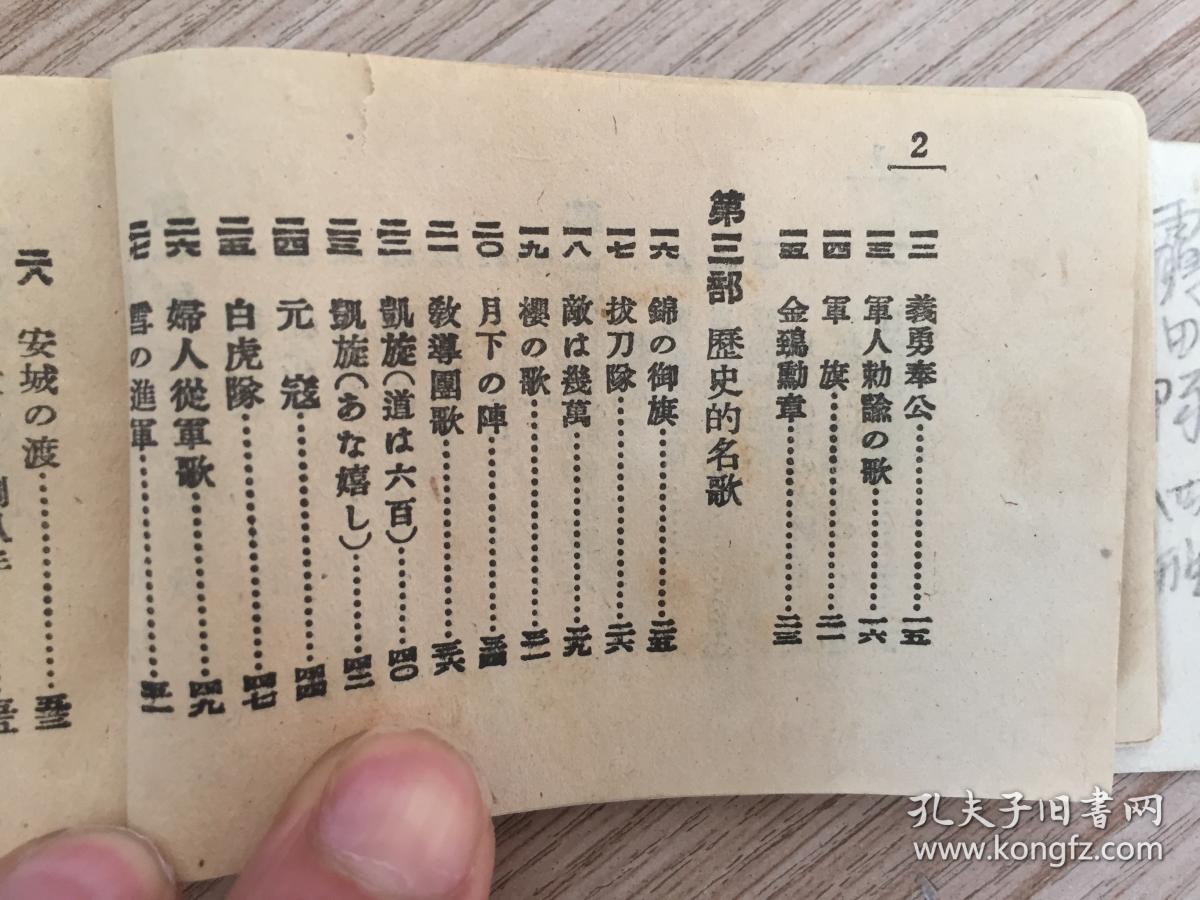 2
一二 義勇奉公……………一五
一三 軍人勅諭の歌…………一六
一四 軍旗……………二一
一五 金鵄勳章……………二三
第三部 歷史的名歌
一六 錦の御旗……………二五
一七 拔刀隊……………二六
一八 敵は幾萬……………二九
一九 櫻の歌……………三一
二〇 月下の陣……………三四
二一 敎導團歌……………三六
二二 凱旋(道は六百)………四〇
二三 凱旋(あな嬉し)………四二
二四 元寇……………四四
二五 白虎隊……………四七
二六 婦人從軍歌…………四九
二七 雪の進軍……………五一
二八 安城の渡……………五三
孔夫子旧书网
www.kongfz.com